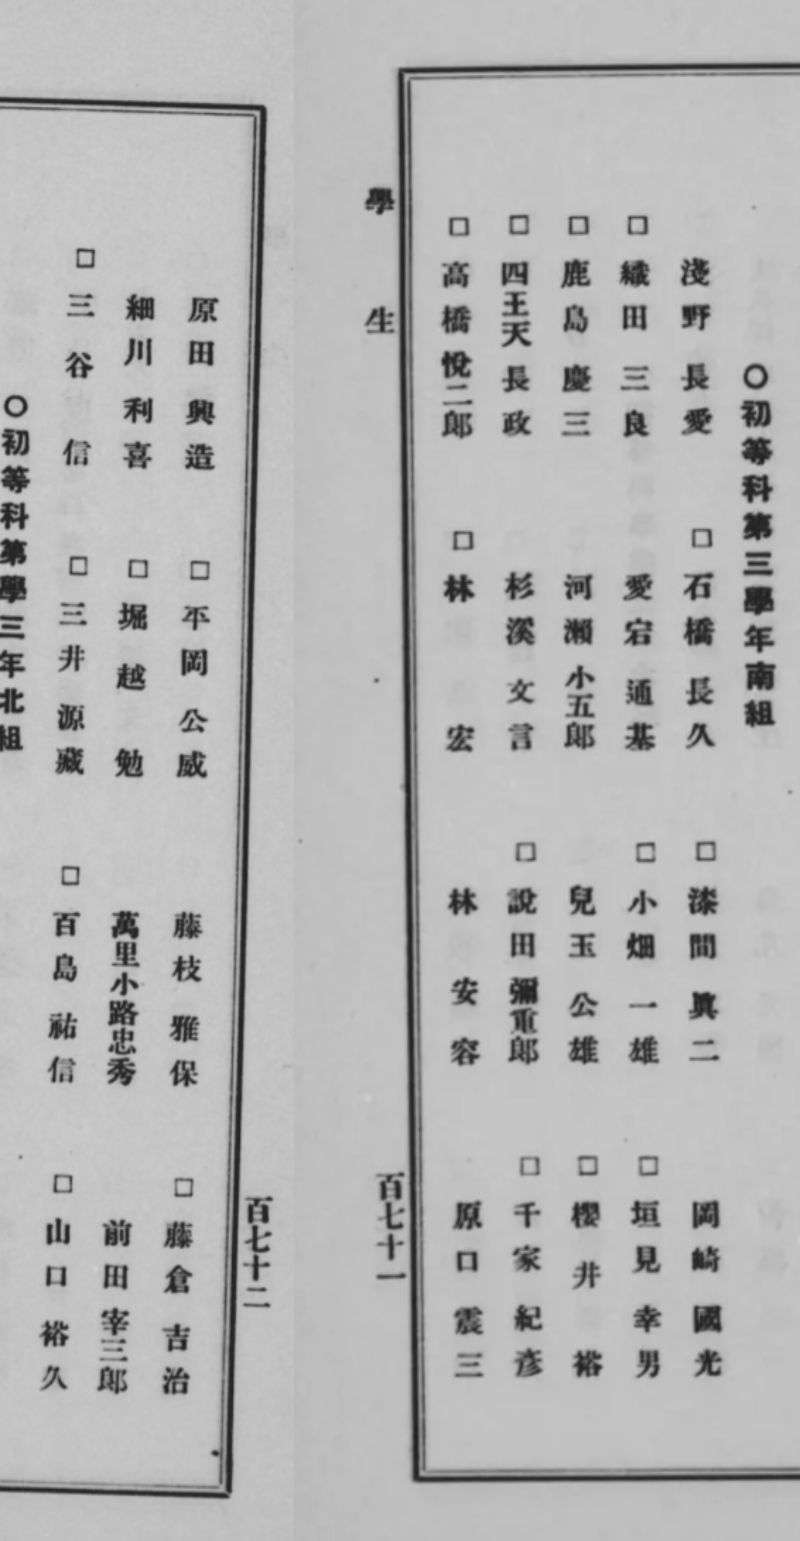 ○初等科第三學年南組
淺野長愛 □石橋長久 □漆間眞二 岡崎國光
□織田三良 愛宕通基 □小畑一雄 □垣見幸男
□鹿島慶三 河瀨小五郎 兒玉公雄 □櫻井裕
□四王天長政 杉溪文言 □說田彌重郎 □千家紀彥
□高橋悅二郎 □林宏 林安容 原口震三
學生
百七十一
百七十二
原田興造 □平岡公威 藤枝雅保 □藤倉吉治
細川利喜 □堀越勉 萬里小路忠秀 前田宰三郎
□三谷信 □三井源藏 □百島祐信 □山口裕久
○初等科第學三年北組